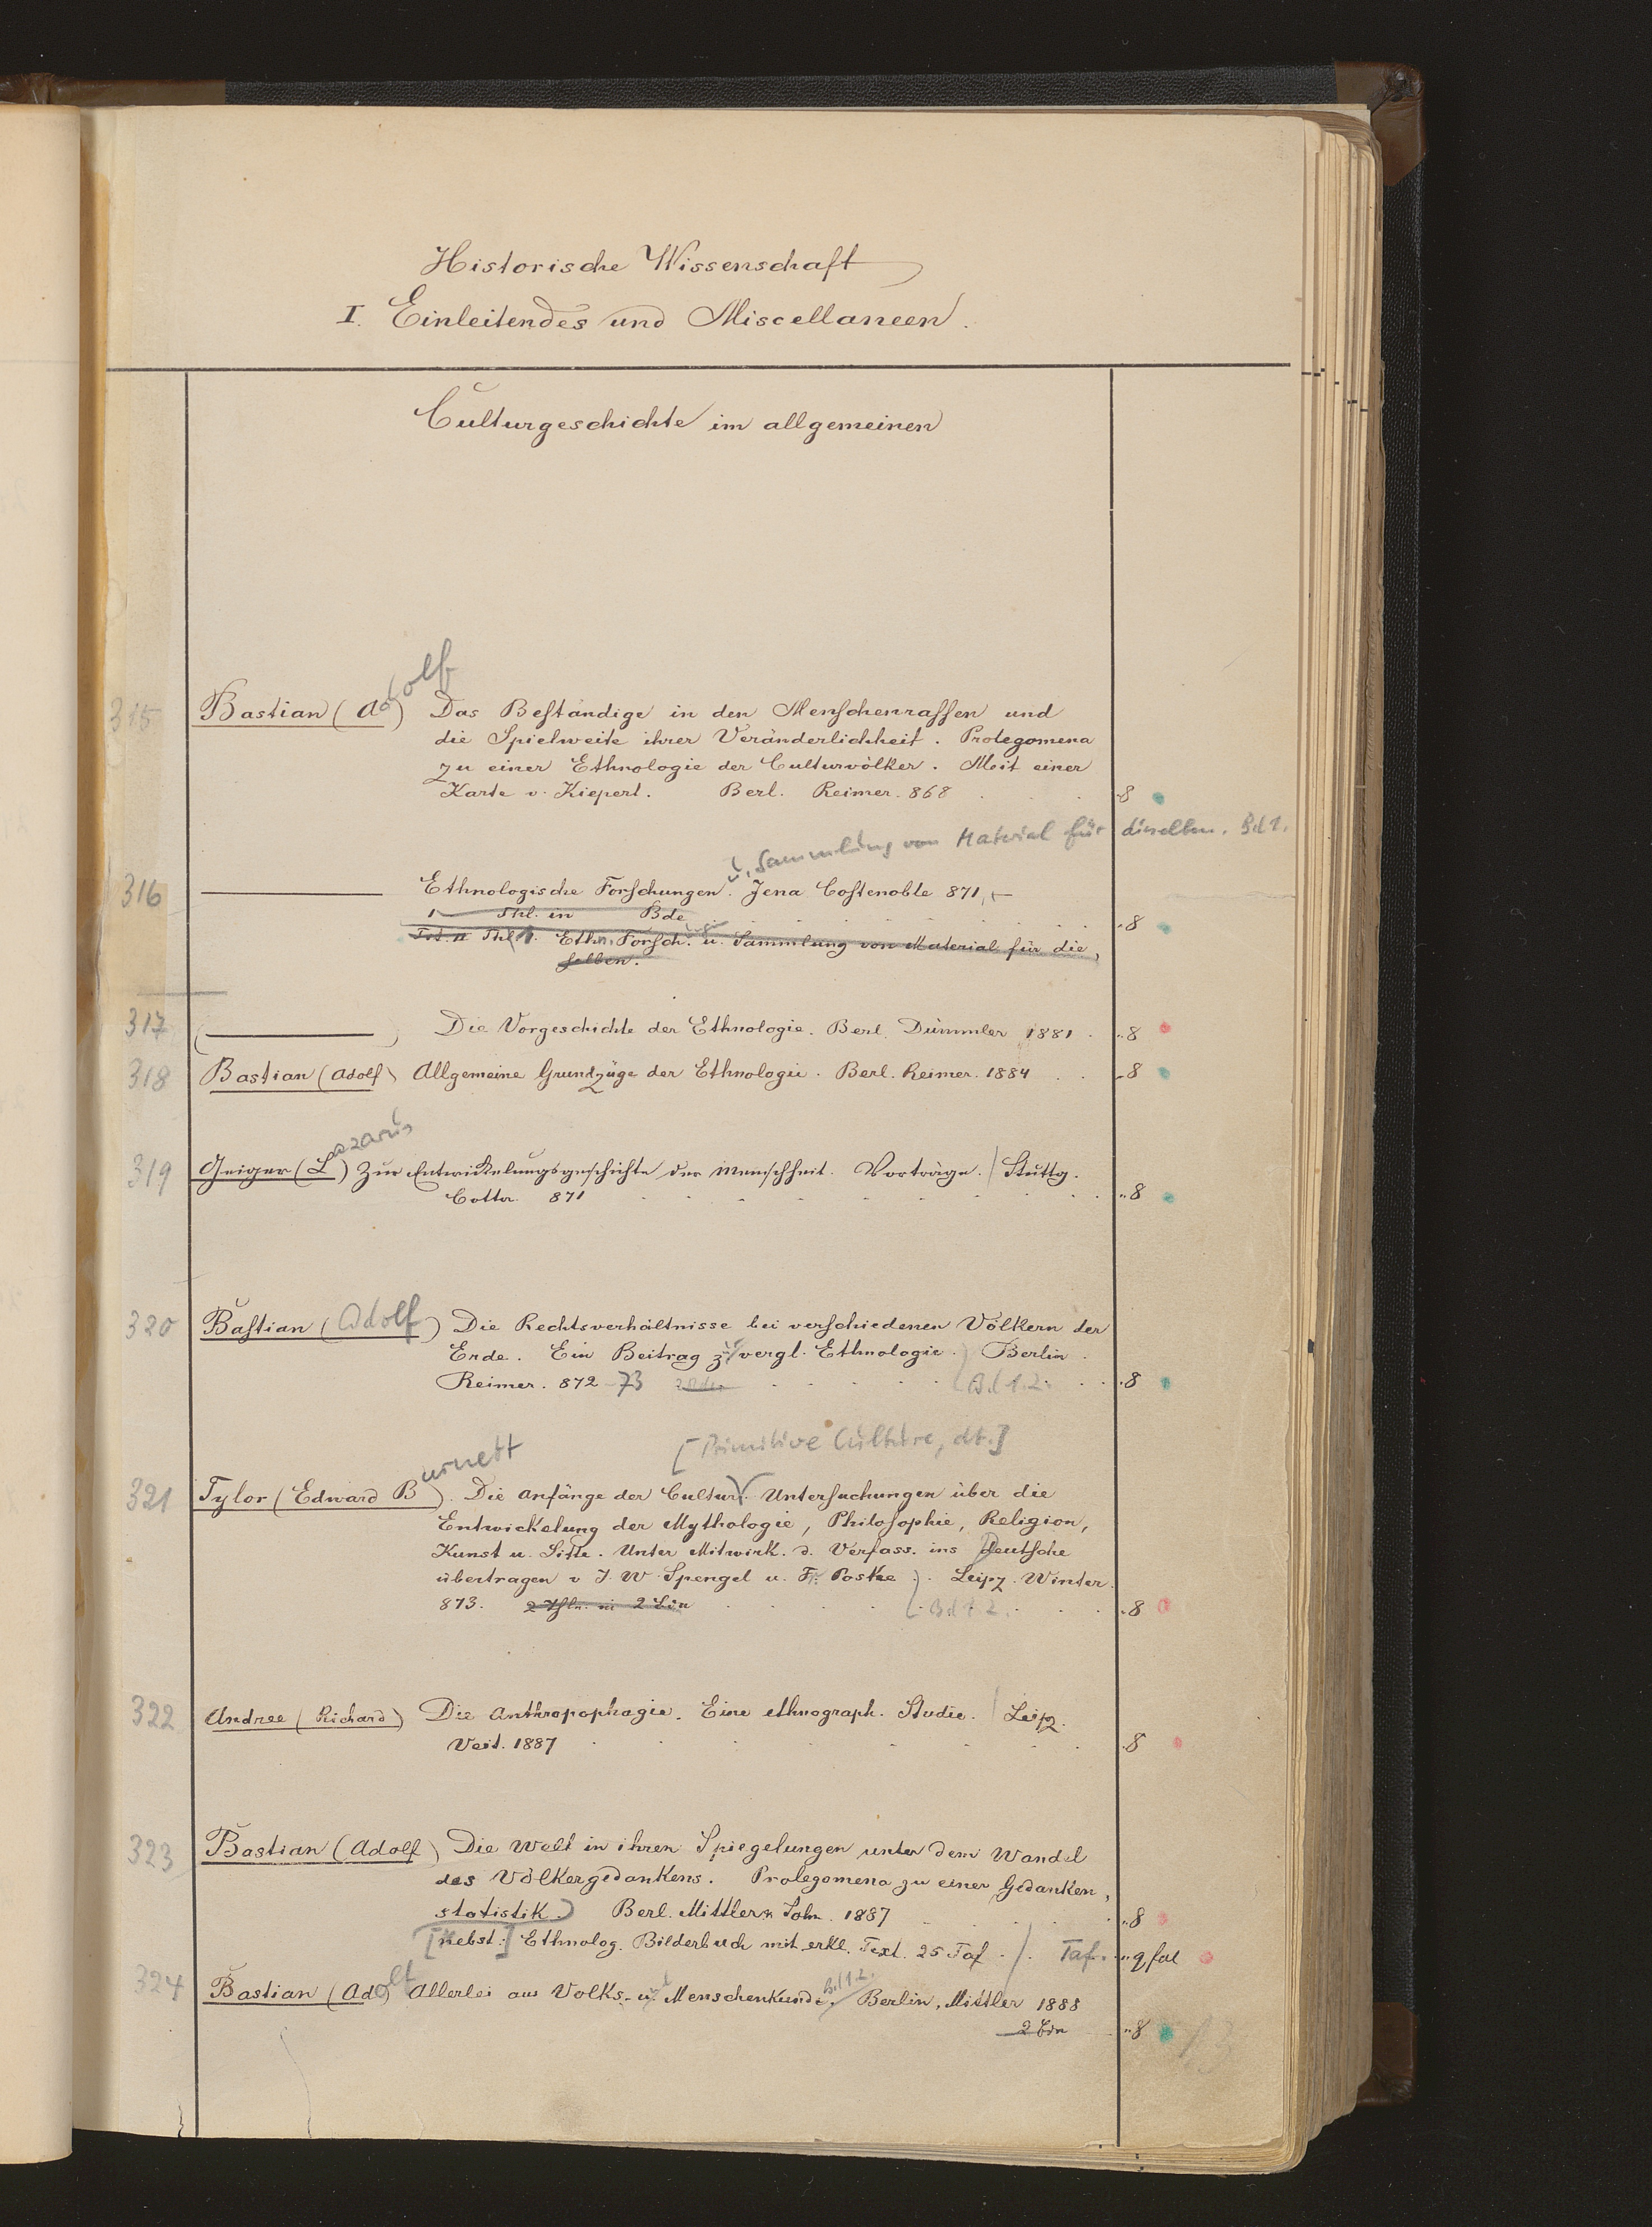 Historische Wissenschaft
I. Einleitendes und Miscellaneen.
Culturgeschichte im allgemeinen
315 Bastian (Adolf) Das Beständige in den Menschenrassen und
die Spielweite ihrer Veränderlichkeit. Prolegomena
zu einer Ethnologie der Culturvölker. Mit einer
Karte v. Kiepert. Berl. Reimer. 868 8
u. Sammlung von Material für dieselben. Bd 1.
316 Ethnologische Forschungen. Jena Costenoble 871,
1 Thl. in Bde 8
Tit. Thl. 1. Ethn. Forsch. u. Sammlung von Material für die,
selben.
317 ( ) Die Vorgeschichte der Ethnologie. Berl. Dümmler 1881 8
318 Bastian (Adolf) Allgemeine Grundzüge der Ethnologie. Berl. Reimer. 1884 8
319 Geiger (Lazarus) Zur Entwickelungsgeschichte der Menschheit. Vorträge. Stuttg.
Cotta. 871 8
320 Bastian (Adolf) Die Rechtsverhältnisse bei verschiedenen Völkern der
Erde. Ein Beitrag zur vergl. Ethnologie. Berlin.
Reimer. 872-73 2 Bde Bd 1.2. 8
[Primitive Culture, dt.]
321 Tylor (Edward Burnett). Die Anfänge der Cultur. Untersuchungen über die
Entwickelung der Mythologie, Philosophie, Religion,
Kunst u. Sitte. Unter Mitwirk. d. Verfass. ins Deutsche
übertragen v J. W. Spengel u. Fr. Poske. Leipz. Winter.
873. 2 Thle. in 2 Bdn Bd 1 2. 8
322 Andree (Richard) Die Anthropophagie. Eine ethnograph. Studie. Leipz.
Veit. 1887 8
323 Bastian (Adolf) Die Welt in ihren Spiegelungen unter dem Wandel
des Völkergedankens. Prolegomena zu einer Gedanken,
statistik. Berl. Mittler u. Sohn. 1887 8
[Nebst:] Ethnolog. Bilderbuch mit erkl. Text. 25 Taf. Taf. q fol
324 Bastian (Adolf) Allerlei aus Volks- u. Menschenkunde. Bd 1.2. Berlin, Mittler 1888
2 Bde 8
13